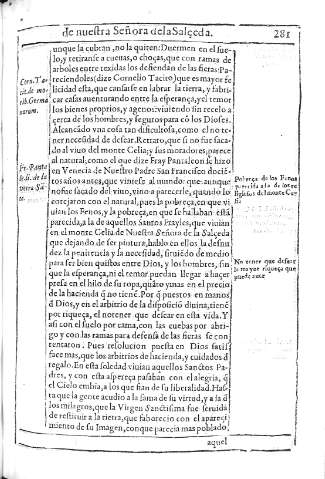 de nuestra Señora de la Salçeda. 281
unque la cubran, no la quiten: Duermen en el sue-
lo, y retiranse a cuebas, o choças, que con ramas de
arboles entre texidas los defiendan de las fieras: Pa-
reciendoles (dize Cornelio Tacito) que es mayor fe
licidad esta, que cansarse en labrar la tierra, y fabri-
car casas auenturando entre la esperança, y el temor
los bienes propios, y agenos: viuiendo sin recelo a
cerca de los hombres, y seguros para cõ los Dioses.
Alcançãdo vna cosa tan dificultosa, como el no te-
ner necessidad de dessear. Retrato, que si no fue saca-
do al viuo del monte Celia; y sus moradores; parece
al natural; como el que dize Fray Pantaleon se hizo
en Venecia de Nuestro Padre san Francisco dociẽ-
tos años antes, que viniesse al mundo: que aunque
no fue sacado del viuo, vino a parecerle, quando lo
cotejaron con el natural, pues la pobreça, en que vi
uian los Fenos, y la pobreça, en que se hallaban està
parecida, a la de aquellos Santos Frayles, que viuian
en el monte Celia de Nuestra Señora de la Salçeda
que dejando de ser pintura, hablo en ellos la desnu
dez la penitencia y la necessidad, siruiẽdo de medio
para ser bien quistos entre Dios, y los hombres, sin
que la esperança, ni el temor puedan llegar a hacer
presa en el hilo de su ropa, quãto y mas en el precio
de la hacienda q̃ no tienẽ. Por q̃ puestos en manos
d̃ Dios, y en el arbitrio de la disposiciõ diuina, tienẽ
por riqueça, el no tener que desear en esta vida. Y
asi con el suelo por cama, con las cuebas por abri-
go y con las ramas para defensa de las fieras se con
tentaron. Pues resolucion puesta en Dios satis
face mas, que los arbitrios de hacienda, y cuidados d̃
regalo. En esta soledad viuian aquellos Sanctos Pa-
dres, y con esta aspereça pasaban con el alegria, q̃
el Cielo embia, a los que fian de su liberalidad. Has-
ta que la gente acudio a la fama de su virtud, y a la d̃
los milagros, que la Virgen Sanctissima fue seruida
de restituir a la tierra, que faborecio con el apareci
miento de su Imagen, con que parecia mas poblado
aquel
Corn. Ta-
cit. de mo-
rib. Germa
norum.
Fr. Panta
Pobreça de los Fenos
parecida a la de los re
ligiosos del monte Ce-
lia
No tener que dessear
la mayor riqueça que
puede auer